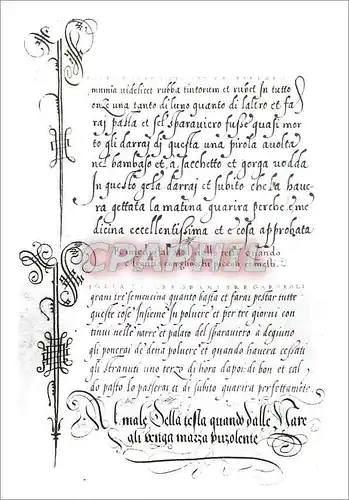 mumia videlicet rubba tintorum et rubel in tutto
onz una tanto di luno quanto di laltro et fa
raj pasta et sel sparaviero fusse quasi mor
to gli darraj di questa una pirola avolta
nel bambaso et a sacchetto et gorga vodda
In questo gela darraj et subito che la have
ra gettata la matina guarira perche e me
dicina eccellentissima et e cosa approbata
CPARAMA
grani tre semencina quanto basta et farai pestar tutte
queste cose insieme in polvere et per tre giorni con
tinui nelle narre et palato del sparaviero à degiuno
gli ponerai de detta polvere et quando havera cessati
gli stranuti uno terzo di hora dapoi di bon et cal
do pasto lo passerai et di subito guarira perfettamēte
Al male della testa quando dalle Nare
gli venga mazza puzolente